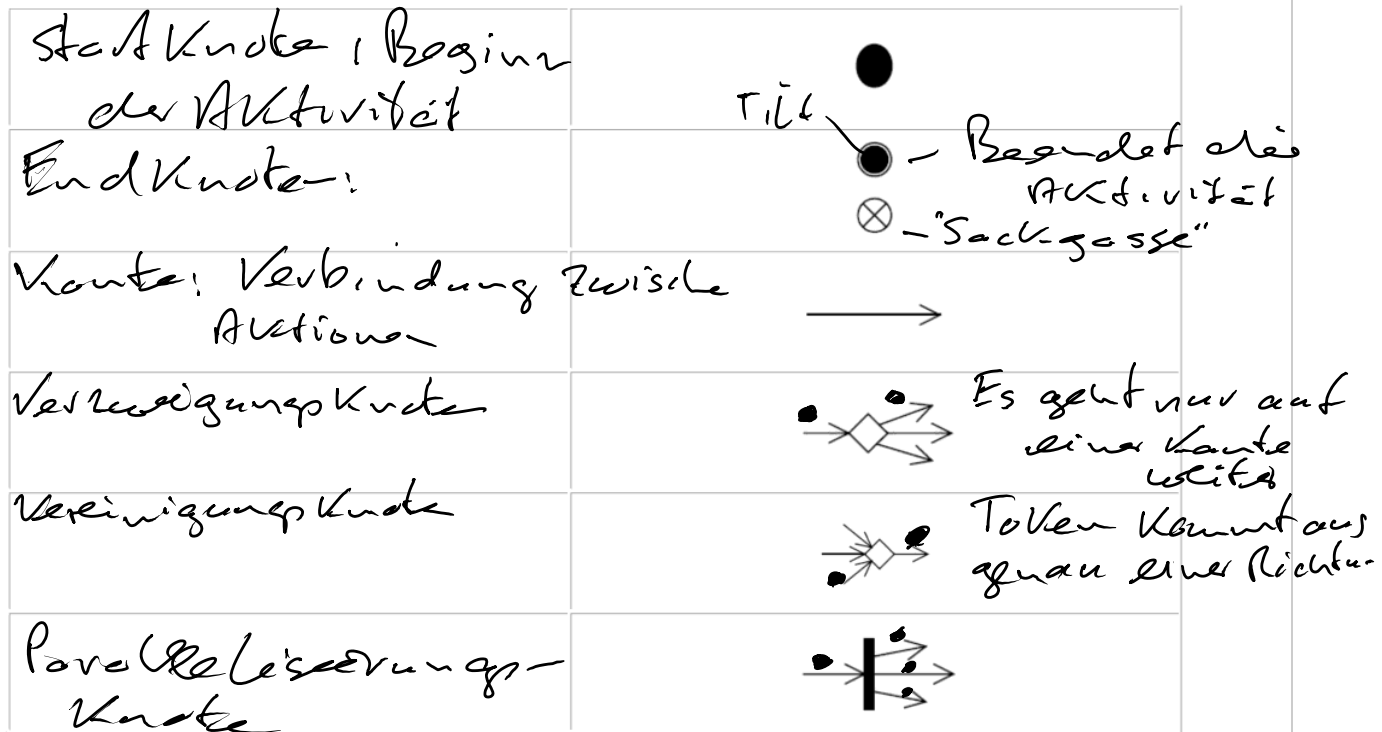 Startknoten, Beginn
der Aktivität
Tilt
Endknoten:
– Beendet die
Aktivität
– "Sackgasse"
Kante: Verbindung zwischen
Aktionen
Verzweigungsknoten
Es geht nur auf
einer Kante
weiter
Vereinigungsknoten
Token kommt aus
genau einer Richtu-
Parallelisierungs-
knoten